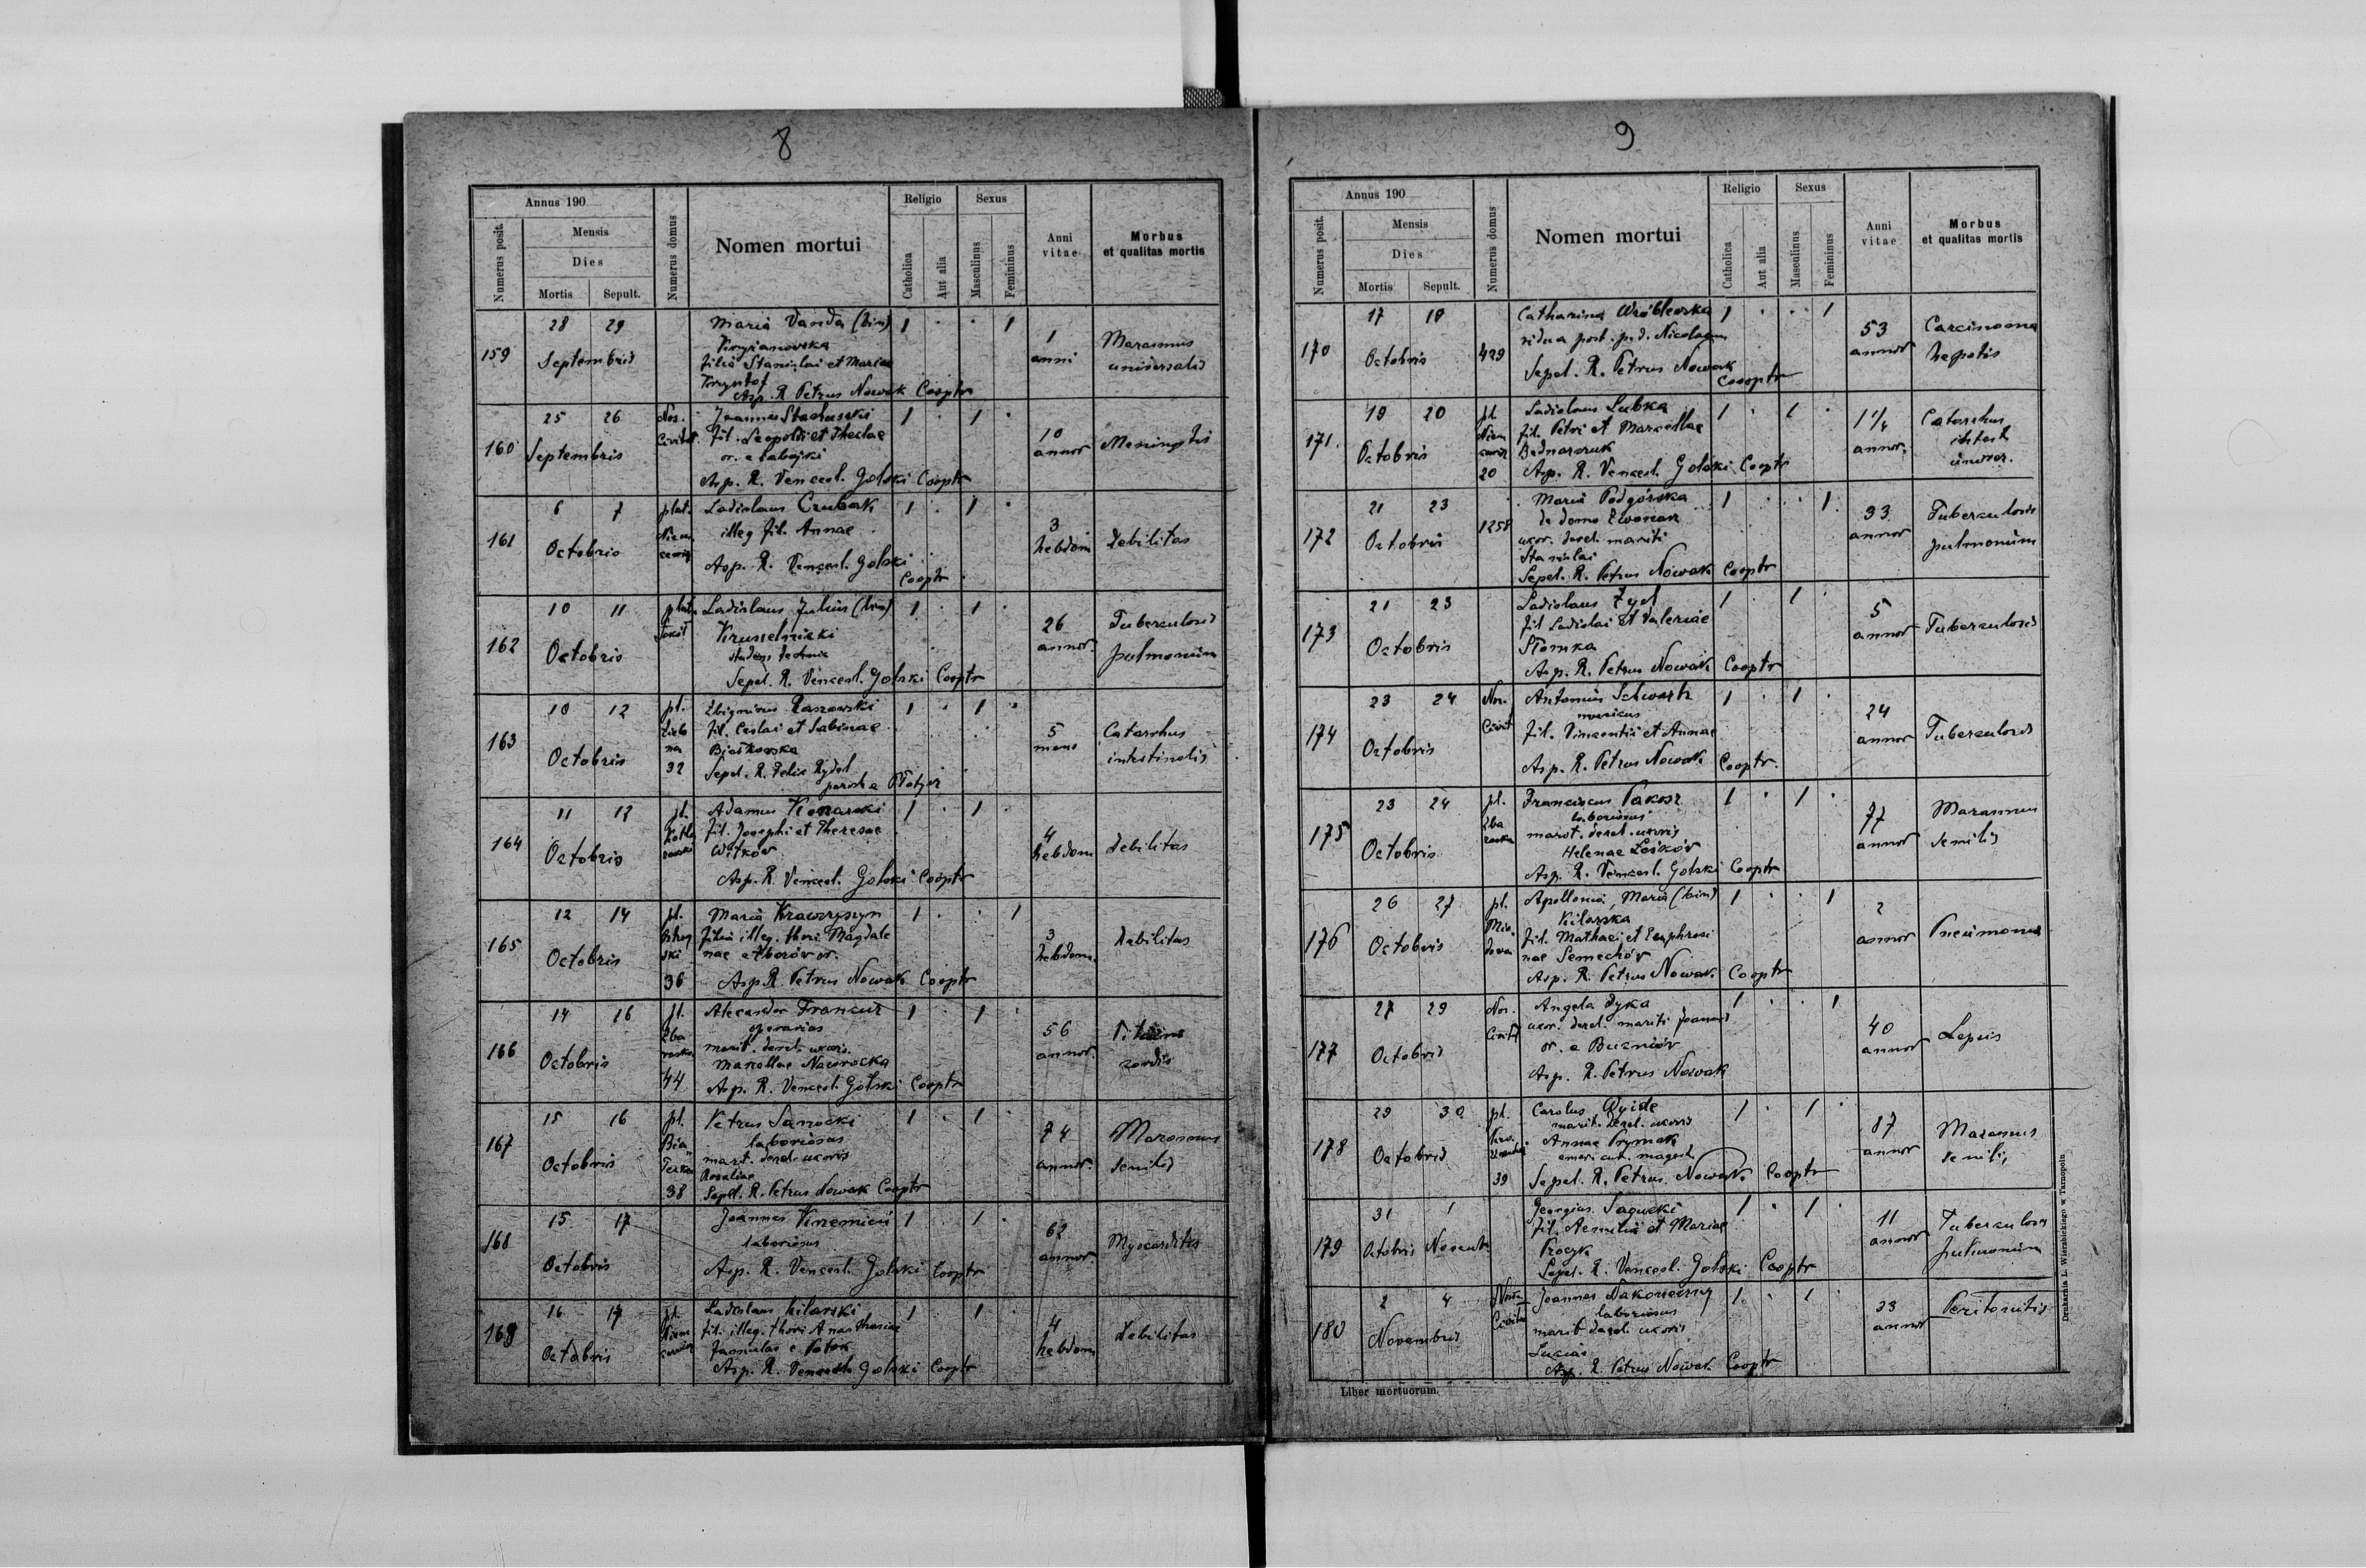 8
Annus 190
Numerus posit.
Mensis
Dies
Mortis Sepult.
Numerus domus
Nomen mortui
Religio
Catholica
Aut alia
Sexus
Masculinus
Femininus
Anni
vitae
Morbus
et qualitas mortis
159
28 29
Septembris
Maria Vanda (bin)
filia Stanislai et Mariae
Asp. R. Petrus Nowak Cooptr
1 1
1
anni
Marasmus
universalis
160
25 26
Septembris
Nos.
Civitat.
Joannes Stachurski
fil. Leopoldi et Theclae
or. e
Asp. R. Vencesl. Golski Cooptr
1 1
10
annor
Meningitis
161
6 7
Octobris
plat.
Niem
cewicz
Ladislaus Czubak
illeg. fil. Annae
Asp. R. Vencesl. Golski
Cooptr
1 1
3
hebdom
debilitas
162
10 11
Octobris
plat.
Ladislaus Julius (bin)
Kruszelnicki
Sepel. R. Vencesl. Golski Cooptr
1 1
26
annor.
Tuberculosis
pulmonum
163
10 12
Octobris
pl.
32
Zbigniew Raszowski
fil. Ceslai et Sabinae
Sepel. R. Felix Rydel
1 1
5
mens
Catarrhus
intestinalis
164
11 13
Octobris
pl.
Adamus Konarski
fil. Josephi et Theresae
Witków
Asp. R. Vencesl. Golski Cooptr
1 1
4
hebdom
debilitas
165
12 14
Octobris
pl.
36
Maria Krawczyszyn
filia illeg. thori Magdale
nae
Asp. R. Petrus Nowak Cooptr
1 1
3
hebdom.
debilitas
166
14 16
Octobris
pl.
Zba
raska
44
Alexander Francuz
operarius
marit. derel. uxoris
Marcellae Nawrocka
Asp. R. Vencesl. Golski Cooptr
1 1
56
annor.
Vitium
cordis
167
15 16
Octobris
pl.
38
Petrus Sanocki
laboriosus
marit. derel. uxoris
Rosaliae
Sepel. R. Petrus Nowak Cooptr
1 1
74
annor.
Marasmus
senilis
168
15 17
Octobris
Joannes Krzemień
laboriosus
Asp. R. Vencesl. Golski Cooptr
1 1
62
annor.
Myocarditis
169
16 17
Octobris
pl.
Niem
cewicz
Ladislaus Kilarski
fil. illeg. thori Anasthasiae
Asp. R. Vencesl. Golski Cooptr
1 1
4
hebdom
debilitas
9
Annus 190
Numerus posit.
Mensis
Dies
Mortis Sepult.
Numerus domus
Nomen mortui
Religio
Catholica
Aut alia
Sexus
Masculinus
Femininus
Anni
vitae
Morbus
et qualitas mortis
170
17 18
Octobris
429
Catharina Wróblewska
vidua post. p. d. Nicolaum
Sepel. R. Petrus Nowak
Cooptr
1 1
53
annor
Carcinoma
hepatis
171
19 20
Octobris
pl.
Niem
cewicz
20
Ladislaus Lubka
fil. Petri et Marcellae
Bednarczuk
Asp. R. Vencesl. Golski Cooptr
1 1
1 1/4
annor.
Catarrhus
intest.
univer.
172
21 23
Octobris
1258
Maria Podgórska
de domo Zwonarz
uxor. derel. mariti
Stanislai
Sepel. R. Petrus Nowak Cooptr
1 1
33
annor
Tuberculosis
pulmonum
173
21 23
Octobris
Ladislaus Zyd
fil Ladislai et Valeriae
Słomka
Asp. R. Petrus Nowak Cooptr
1 1
5
annor
Tuberculosis
174
23 24
Octobris
Nos.
Civit
Antonius Schwartz
musicus
fil. Vincentii et Annae
Asp. R. Petrus Nowak Cooptr.
1 1
24
annor
Tuberculosis
175
23 24
Octobris
pl.
Zba
raska
Franciscus Pakosz
laboriosus
marit. derel. uxoris
Helenae Leśków
Asp. R. Vencesl. Golski Cooptr
1 1
77
annor
Marasmus
senilis
176
26 27
Octobris
pl.
Mio
dowa
Apollonia, Maria (bin)
Kilarska
fil. Mathaei et Euphrosi
nae Semechów
Asp. R. Petrus Nowak Cooptr
1 1
2
annor
Pneumonia
177
27 29
Octobris
Nos.
Civit
Angela Dyka
uxor. derel. mariti Joannis
or. e Bucniów
Asp. R. Petrus Nowak
1 1
40
annor
178
29 30
Octobris
pl.
39
Carolus
marit. derel. uxoris
Annae Prymak
Sepel. R. Petrus Nowak Cooptr
1 1
87
annor
Marasmus
senilis
179
31 1
Octobris Novemb.
Georgius
fil. Aemilii et Mariae
Procyk
Sepel. R. Vencesl. Golski Cooptr
1 1
11
annor
Tuberculosis
pulmonum
180
2 4
Novembris
Civitat
Joannes Nakonieczny
laboriosus
marit derel. uxoris
Luciae
Asp. R. Petrus Nowak Cooptr
1 1
33
annor
Peritonitis
Liber mortuorum.
Drukarnia L. Wierzbickiego w Tarnopolu